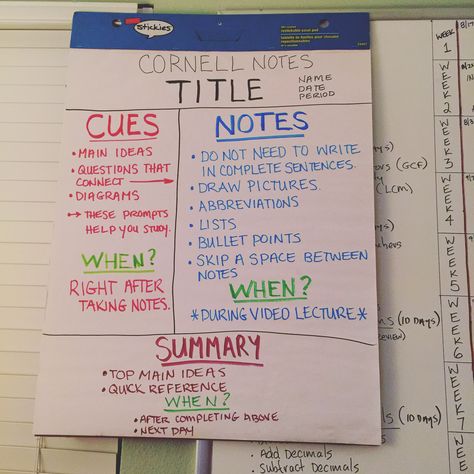 Stickies
CORNELL NOTES
TITLE
NAME
DATE
PERIOD
CUES
• MAIN IDEAS
• QUESTIONS THAT
CONNECT →
• DIAGRAMS
→ THESE PROMPTS
HELP YOU STUDY.
WHEN?
RIGHT AFTER
TAKING NOTES.
NOTES
• DO NOT NEED TO WRITE
IN COMPLETE SENTENCES.
• DRAW PICTURES.
• ABBREVIATIONS
• LISTS
• BULLET POINTS
• SKIP A SPACE BETWEEN
NOTES
WHEN?
*DURING VIDEO LECTURE*
SUMMARY
• TOP MAIN IDEAS
• QUICK REFERENCE
WHEN?
• AFTER COMPLETING ABOVE
• NEXT DAY
WEEK
1
WEEK
2
WEEK
3
WEEK
4
WEEK
5
WEEK
6
WEEK
7
(GCF)
(LCM)
(10 DAYS)
(10 DAYS)
• Add Decimals
• Subtract Decimals